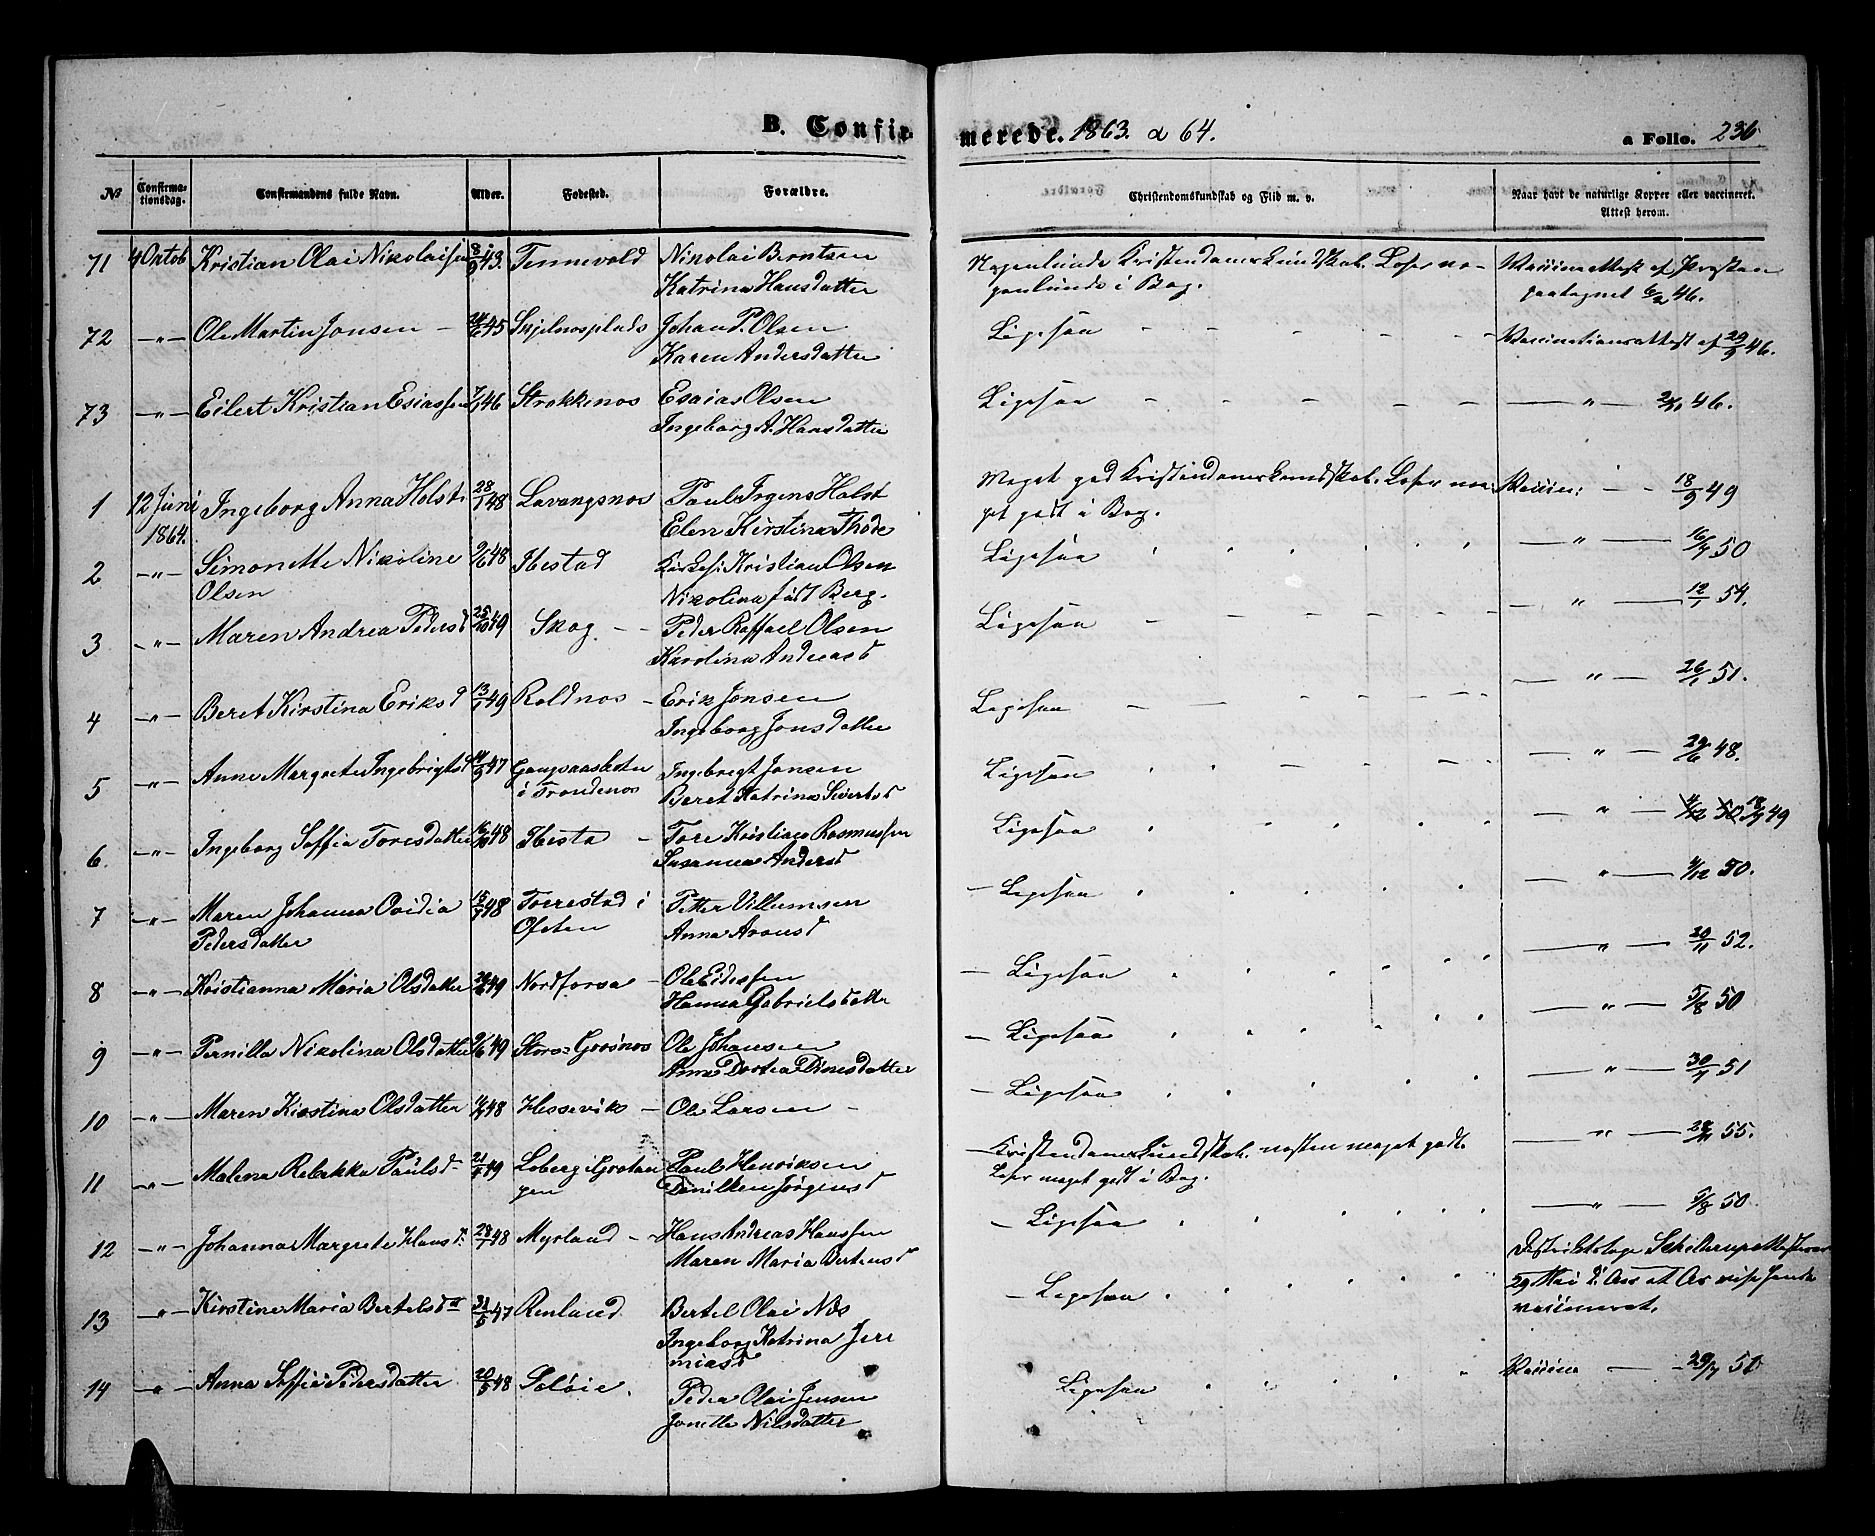 B. Confirmerede. 1863. a 64.
a Folio. 236
No
Confirmationsdag.
Confirmandens fulde Navn.
Alder.
Fødested.
Forældre.
Christendomskundskab og Flid m. v.
Naar havt de naturlige Kopper eller vaccineret. Attest herom.
71 4 Octob Kristian Olai Nikolaisen 8/9 43. Tennevold Nikolai Berntsen
Katrina Hansdatter
Nogenlunde Kristendomskundskab. Læser no-
genlunde i Bog.
Vaccineattest af Presten
paategnet 6/2 46.
72 -"- Ole Martin Jonsen - 45 Johan P. Olsen
Karen Andersdatter
Ligesaa - - - - -
Vaccinationsattest af 20/9 46.
73 -"- Eilert Kristian Esiassen 7/1 46 Strokkenes Esaias Olsen
Ingeborg A. Hansdatter
Ligesaa - - - - -
" 46.
1 12 Juni 1864. Ingeborg Anna Holst 28/1 48 Lavangsnes Paul Irgens Holst
Elen Kirstina Thode
Meget god Kristendomskundskab. Læser me-
get godt i Bog.
Vaccin: - - 18/9 49
2 -"- Simonette Nikoline
Olsen
9/6 48 Ibestad Kirkes: Kristian Olsen
Nikolina født Berg.
Ligesaa
" 16/7 50
3 -"- Maren Andrea Pedersd 25/10 49 Skog - - Peder Raffael Olsen
Karolina Andreasd
Ligesaa
" 12/1 54.
4 -"- Beret Kirstina Eriksd 13/1 49 Roldnes - Erik Jonsen
Ingeborg Jonsdatter
Ligesaa
" 26/1 51.
5 -"- Anne Margrete Ingebrigtsd 47
i Trondenes
Ingebregt Jonsen
Beret Katrina Sivertsd
Ligesaa
" 29/6 48.
6. -"- Ingeborg Soffia Toresdatter 48 Ibesta - Tore Kristian Rasmussen
Susanna Andersd
Ligesaa
" 4/12 50 18/9 49
7 -"- Maren Johanna Ovidia
Pedersdatter
15/7 48 Torrestad i
Ofoten
Petter Villumsen
Anna Aronsd
- Ligesaa
" 4/12 50.
8 -"- Kristianna Maria Olsdatter 49 Nordforsa - Ole Eidissen
Hanna Gabrielsdatter
- Ligesaa
" 20/11 52.
9 -"- Pernilla Nikolina Olsdatter 9/6 49 Store=Gresnes Ole Johansen
Anna Dortea Dinesdatter
- Ligesaa
" 5/8 50
10 -"- Maren Kirstina Olsdatter 48 Hesseviks - Ole Larsen -
- Ligesaa
" 30/7 51
11 -"- Malena Rebekka Paulsd- 21/5 49 Loberg i Gratan
gen
Paul Henriksen
Danilken Jörgensd
- Kristendomskundskab. næsten meget godt.
Læser meget godt i Bog.
" 55.
12 -"- Johanna Margrete Hansd: 29/7 48 Myrland - Hans Andreas Hanssen
Maren Maria Bertensd
- Ligesaa
" 5/8 50
13 " Kirstine Maria Bertelsdtt 31/5 47 Renland. Bertel Olai Næs
Ingeborg Katrina Jere
miasd
- Ligesaa
Distriktslæge
29 Mai
vaccineret.
14 -"- Anna Soffie Pedersdatter 20/5 48 Seløie. Peder Olai Jensen
Jonette Nilsdatter
Ligesaa
Vaccine - - 29/7 51